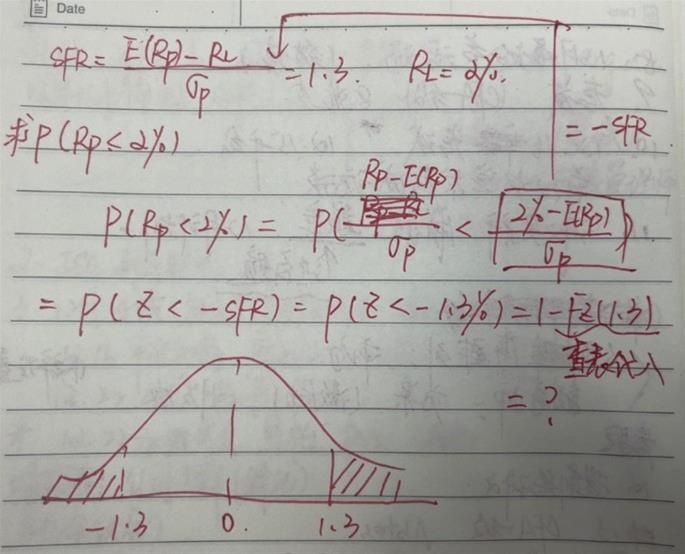 Date
SFR = E(Rp) - RL / σp = 1.3. RL = 2%.
= -SFR
求 P(Rp < 2%)
Rp - E(Rp)
P(Rp < 2%) = P( / σp < 2% - E(Rp) / σp ).
= P(Z < -SFR) = P(Z < -1.3%) = 1 - Fz(1.3)
查表代入
= ?
-1.3 0. 1.3